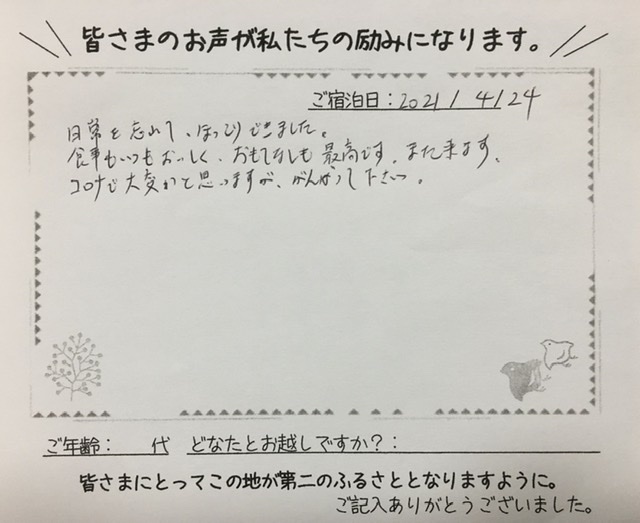 皆さまのお声が私たちの励みになります。
ご宿泊日：2021/4/24
日常を忘れて、ほっこりできました。
食事もいつもおいしく、おもてなしも最高です。また来ます。
コロナで大変かと思いますが、がんばって下さい。
ご年齢：　代　どなたとお越しですか？：
皆さまにとってこの地が第二のふるさととなりますように。
ご記入ありがとうございました。